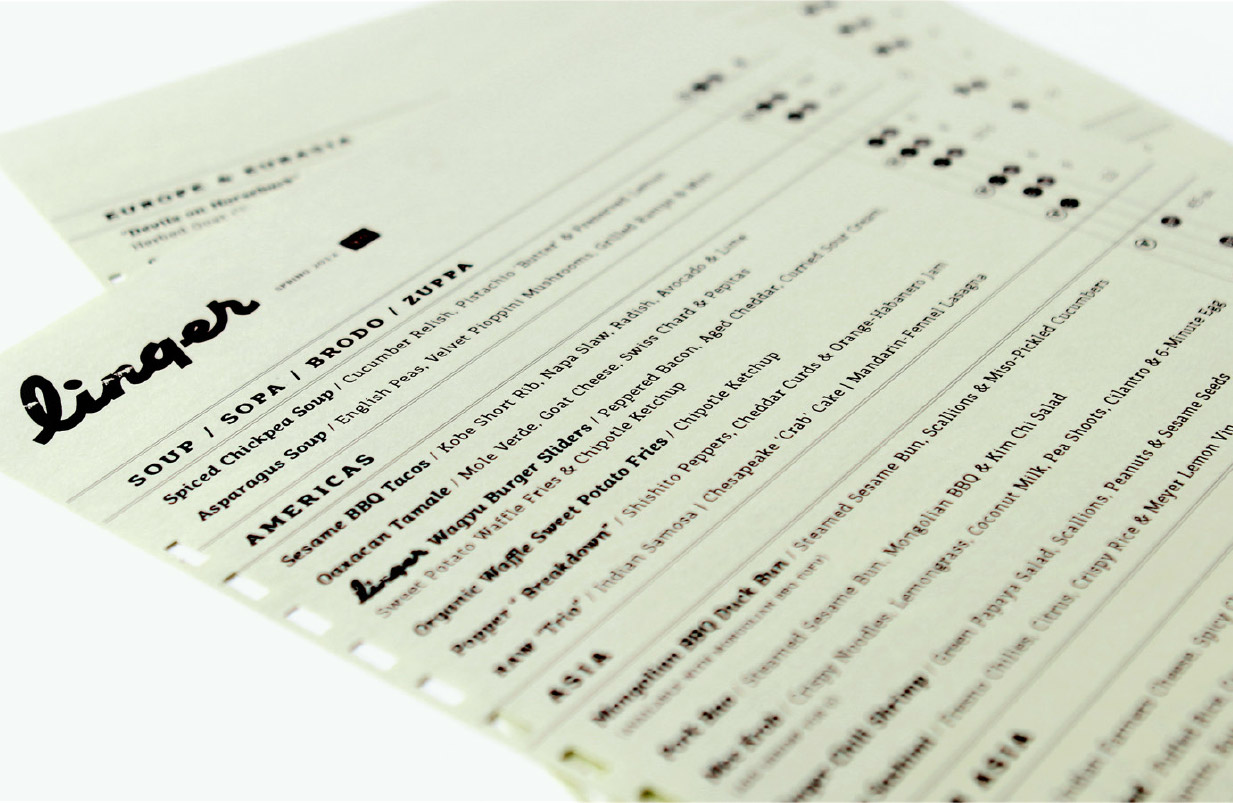 EUROPE & EURASIA
"Devils on Horseback"
linger
SPRING 2012
SOUP / SOPA / BRODO / ZUPPA
Spiced Chickpea Soup / Cucumber Relish, Pistachio "Butter" & Preserved Lemon
Asparagus Soup / English Peas, Velvet Pioppini Mushrooms, Grilled Ramps & Mint
AMERICAS
Sesame BBQ Tacos / Kobe Short Rib, Napa Slaw, Radish, Avocado & Lime
Oaxacan Tamale / Mole Verde, Goat Cheese, Swiss Chard & Pepitas
linger Wagyu Burger Sliders / Peppered Bacon, Aged Cheddar, Curried Sour Cream
Sweet Potato Waffle Fries & Chipotle Ketchup
Organic Waffle Sweet Potato Fries / Chipotle Ketchup
Pepper "Breakdown" / Shishito Peppers, Cheddar Curds & Orange-Habanero Jam
RAW "Trio" / Indian Samosa | Chesapeake 'Crab' Cake | Mandarin-Fennel Lasagna
ASIA
Mongolian BBQ Duck Bun / Steamed Sesame Bun, Scallions & Miso-Pickled Cucumbers
Steamed Sesame Bun, Mongolian BBQ & Kim Chi Salad
Crispy Noodles, Lemongrass, Coconut Milk, Pea Shoots, Cilantro & 6-Minute Egg
Chili Shrimp / Green Papaya Salad, Scallions, Peanuts & Sesame Seeds
Chilies, Citrus, Crispy Rice & Meyer Lemon Vin
ASIA